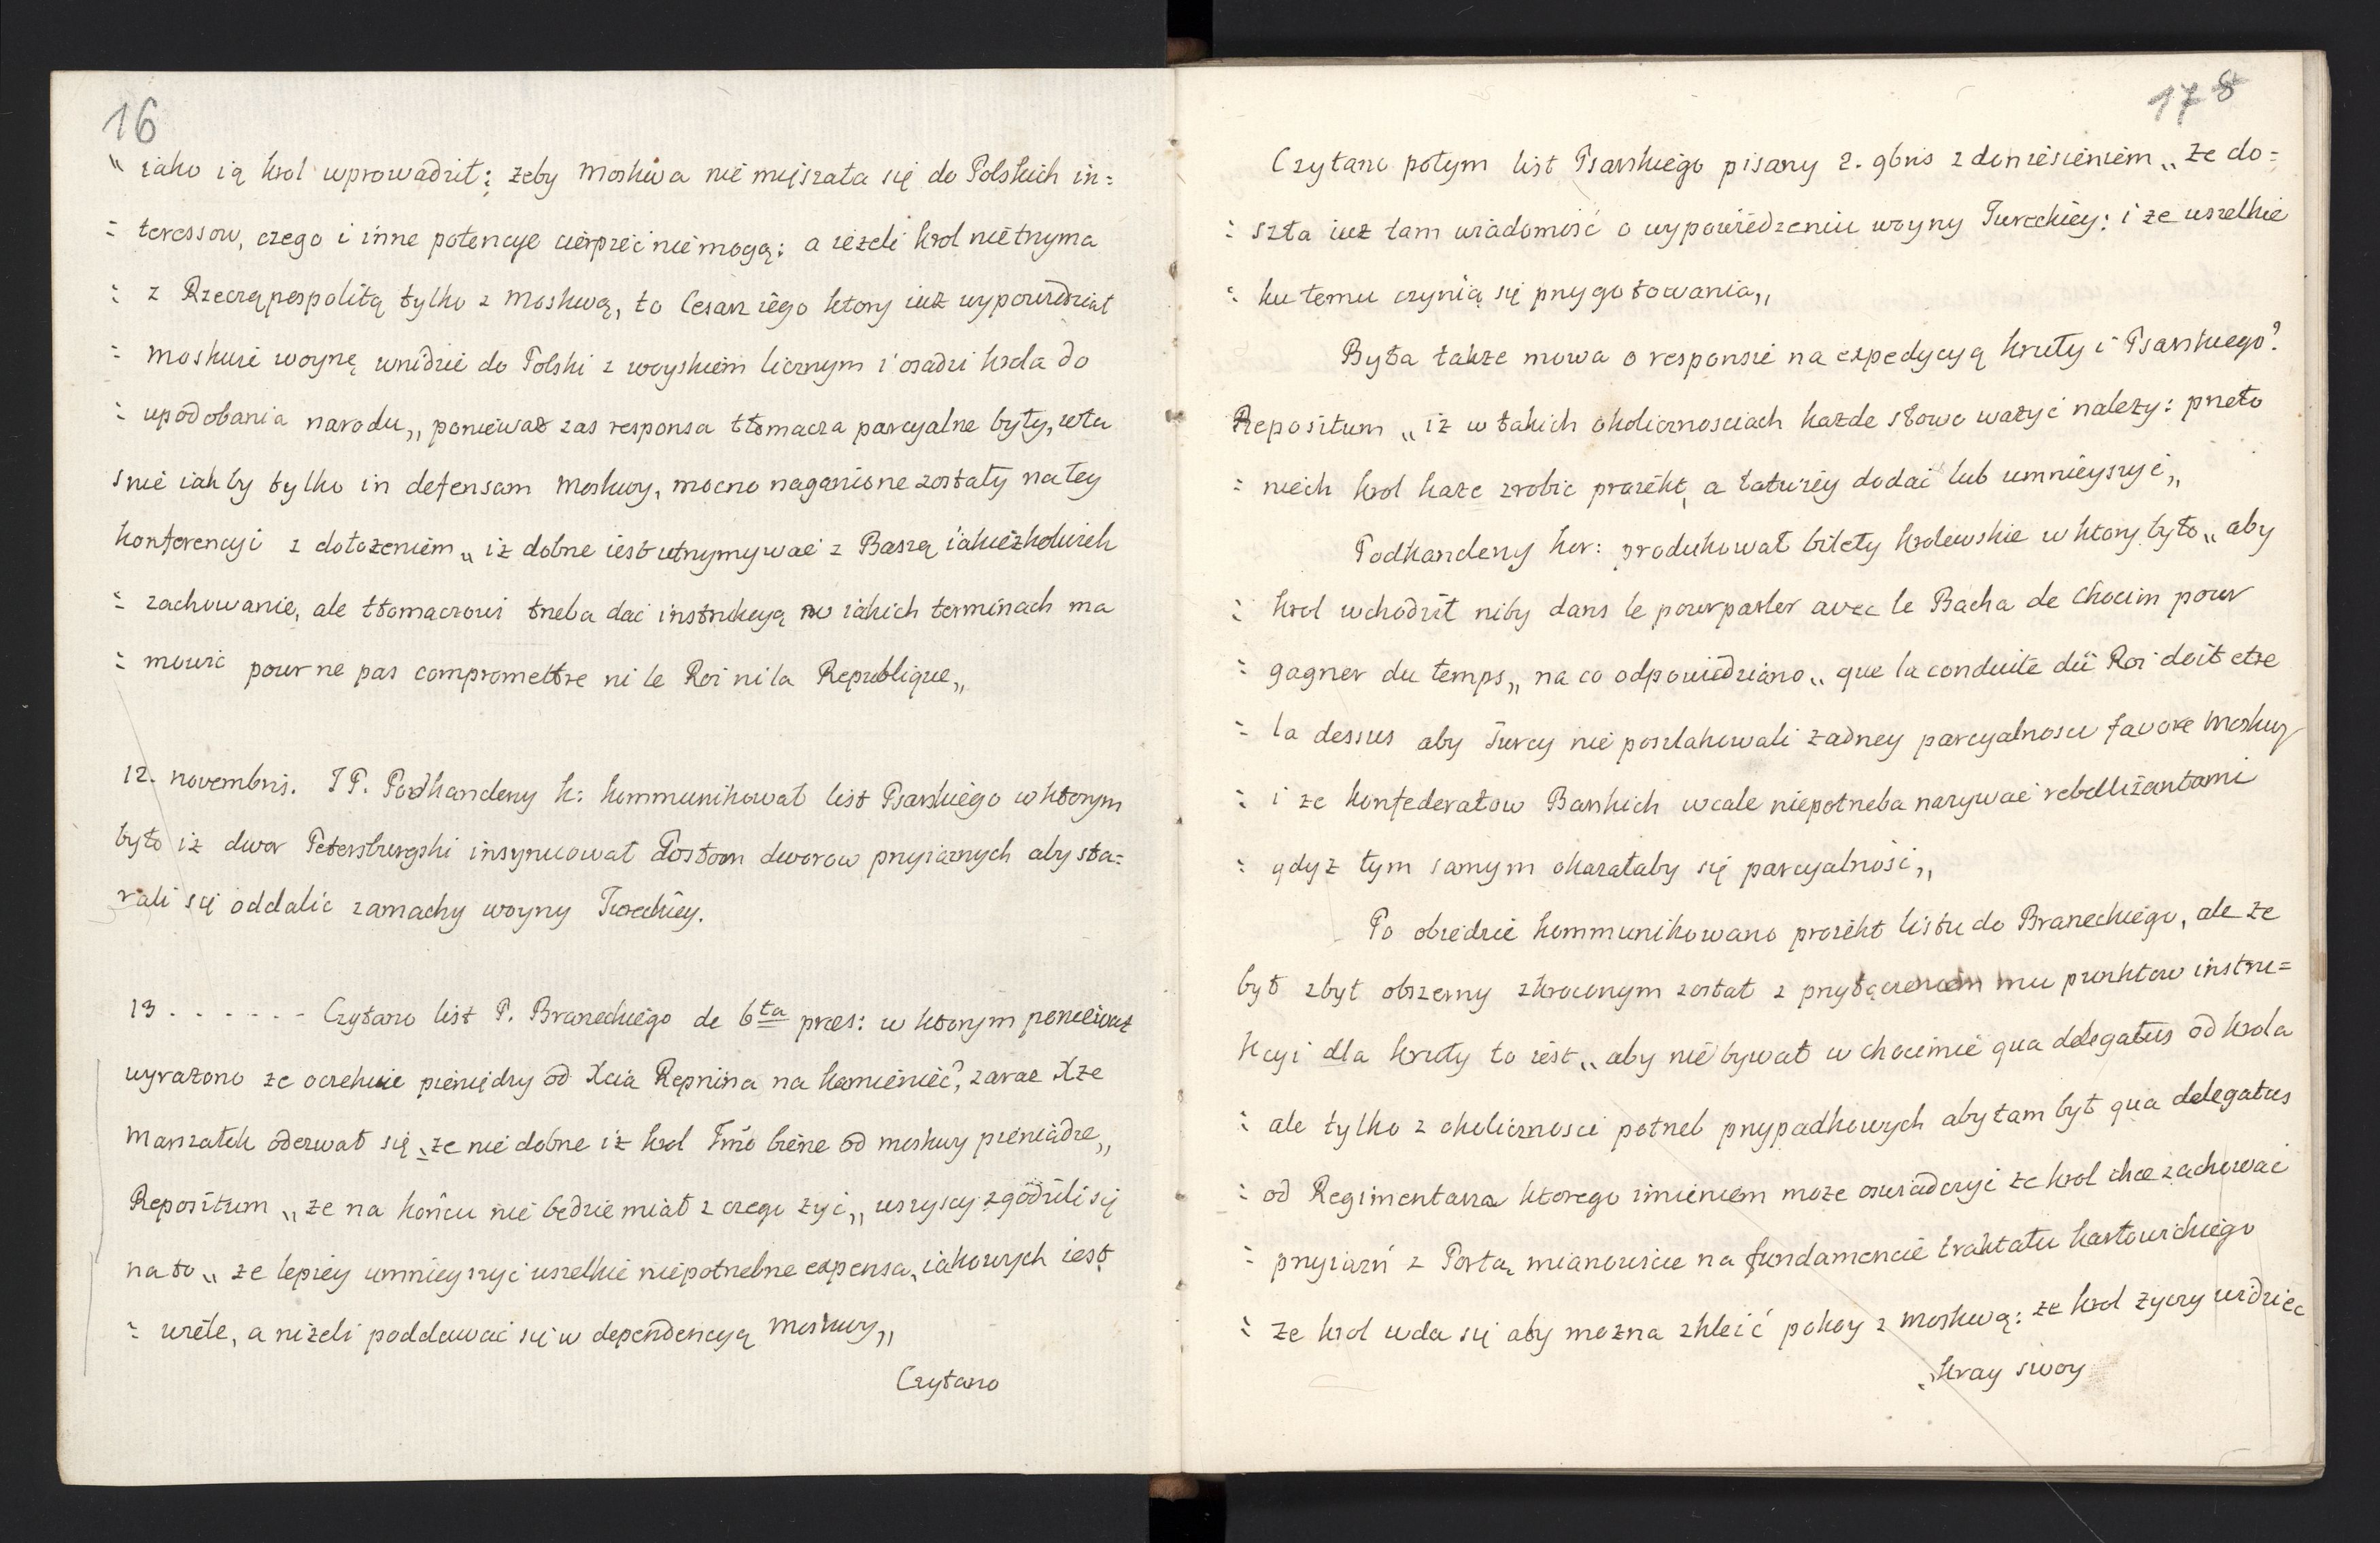 16
„ iako ią krol wprowadził; żeby Moskwa nie mięszała się do Polskich in=
= teressow, czego i inne potencye cierpieć nie mogą: a ieżeli krol nie trzyma
: z Rzecząpospolitą tylko z Moskwą, to Cesarz iego ktory iuż wypowiedział
= Moskwie woynę wnidzie do Polski z woyskiem licznym i osadzi krola do
= upodobania narodu„ ponieważ zas responsa tłomacza parcyalne były, wła
snie iakby tylko in defensam Moskwy, mocno naganione zostały na tey
konferencyi z dołożeniem „ iż dobrze iest utrzymywać z Baszą iakieżkolwiek
= zachowanie, ale tłomaczowi trzeba dać instrukcyą w iakich terminach ma
= mowić pour ne pas compromettre ni le Roi ni la Republique„
12. novembris. JP. Podkanclerzy k: kommunikował list Psarskiego w ktorym
było iż dwor Petersburgski insynuował Posłom dworow przyiaznych aby sta=
rali się oddalić zamachy woyny Tureckiey.
13 . . . . . . - Czytano list P. Braneckiego de 6ta praes: w ktorym ponieważ
wyrażono że oczekuie pieniędzy od Xcia Repnina na Kamieniec, zaraz Xże
Marszałek odezwał się „że nie dobrze iż krol Jmć bierze od Moskwy pieniądze„
Repositum „ że na końcu nie będzie miał z czego żyć„ wszyscy zgodzili się
na to „ że lepiey umnieyszyć wszelkie niepotrzebne expensa, iakowych iest
= wiele, a niżeli poddawać się w dependencyą Moskwy„
Czytano
17 8
Czytano potym list Psarskiego pisany 2. 9bris z doniesieniem „ że do=
= szła iuż tam wiadomość o wypowiedzeniu woyny Tureckiey: i że wszelkie
= ku temu czynią się przygotowania„
Była także mowa o responsie na expedycyą Kruty i Psarskiego?
Repositum „ iż w takich okolicznosciach każde słowo ważyć należy: przeto
= niech krol każe zrobić proiekt, a łatwiey dodać lub umnieyszyć„
Podkanclerzy kor: produkował bilety krolewskie w ktory było „ aby
= krol wchodził niby dans le pourparler avec le Bacha de Chocim pour
= gagner du temps„ na co odpowiedziano „ que la conduite du Roi doit etre
= la dessus aby Turcy nie poszlakowali żadney parcyalnosci favore Moskwy
= i że konfederatow Barskich wcale niepotrzeba nazywać rebellizantami
= gdyż tym samym okazałaby się parcyalność„
Po obiedzie kommunikowano proiekt listu do Braneckiego, ale że
był zbyt obszerny skroconym został z przyłączeniem mu punktow instru=
kcyi dla Kruty to iest „ aby nie bywał w Chocimie qua delegatus od krola
= ale tylko z okolicznosci potrzeb przypadkowych aby tam był qua delegatus
= od Regimentarza ktorego imieniem może oswiadczyć że krol chce zachować
= przyiazń z Portą, mianowicie na fundamencie traktatu karłowickiego
= że krol uda się aby można skleić pokoy z Moskwą: że krol życzy widzieć
„kray swoy